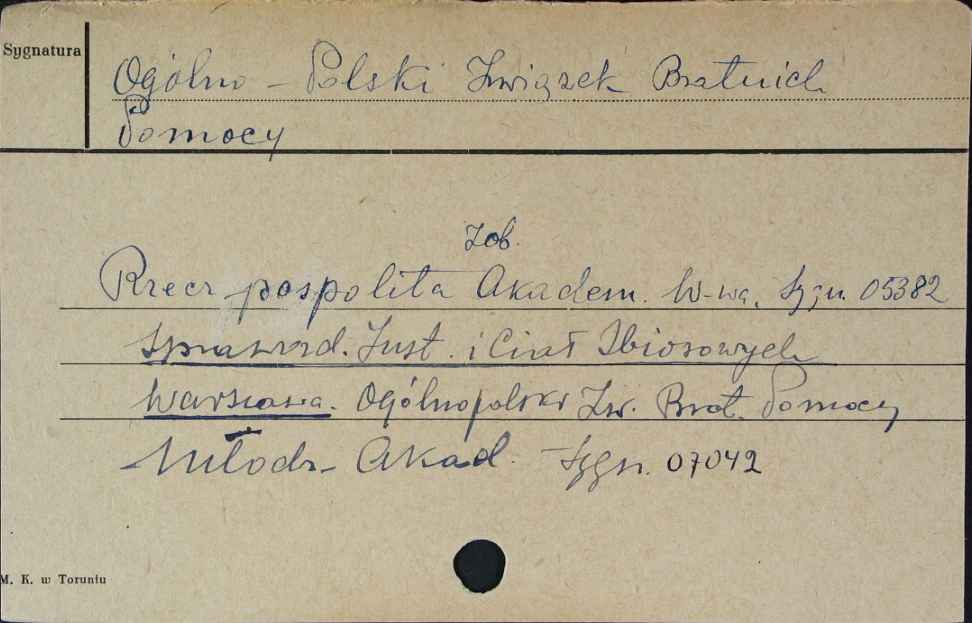 Sygnatura
Ogólno - Polski Związek Bratnich
Pomocy
Zob.
Rzecz pospolita Akadem. W-wa. Sygn. 05382
Sprawozd. Inst. i Ciał Zbiorowych
Warszawa. Ogólnopolski Zw. Brat. Pomocy
Młodz. Akad. Sygn. 07042
M. K. w Toruniu